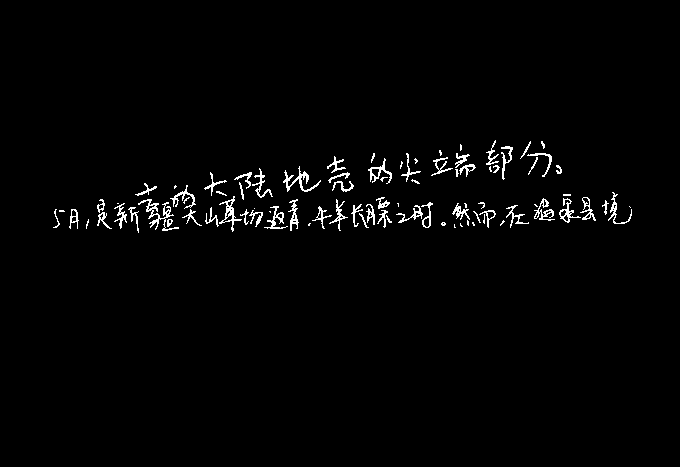 古的大陆地壳的尖端部分。
5月,是新疆天山草场返青、牛羊长膘之时。然而,在温泉县境